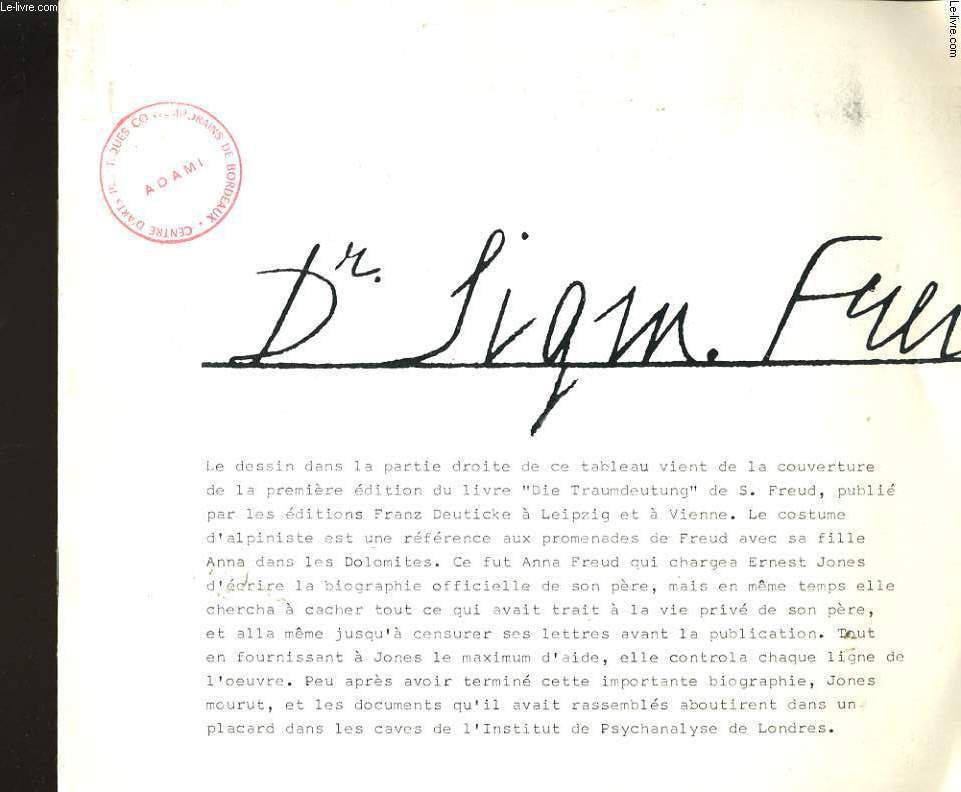 Le-livre.com
Le-livre.com
CENTRE D'ARTS CONTEMPORAINS DE BORDEAUX
ADAMI
Dr. Sigm. Freu
Le dessin dans la partie droite de ce tableau vient de la couverture
de la première édition du livre "Die Traumdeutung" de S. Freud, publié
par les éditions Franz Deuticke à Leipzig et à Vienne. Le costume
d'alpiniste est une référence aux promenades de Freud avec sa fille
Anna dans les Dolomites. Ce fut Anna Freud qui chargea Ernest Jones
d'écrire la biographie officielle de son père, mais en même temps elle
chercha à cacher tout ce qui avait trait à la vie privé de son père,
et alla même jusqu'à censurer ses lettres avant la publication. Tout
en fournissant à Jones le maximum d'aide, elle controla chaque ligne de
l'oeuvre. Peu après avoir terminé cette importante biographie, Jones
mourut, et les documents qu'il avait rassemblés aboutirent dans un
placard dans les caves de l'Institut de Psychanalyse de Londres.